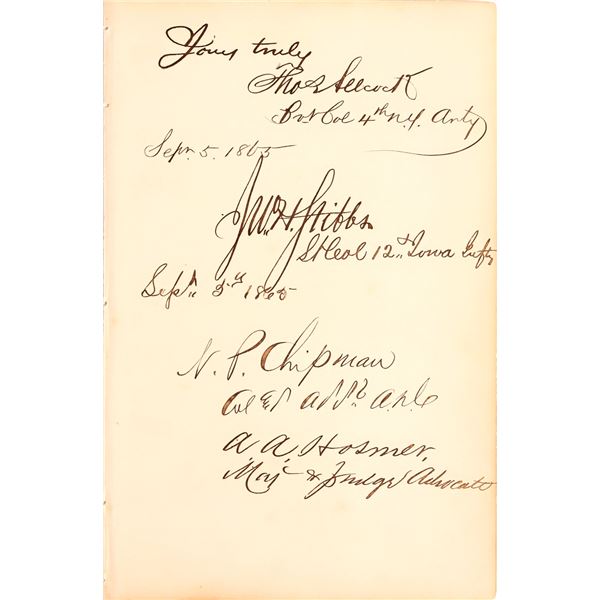 Yours truly
Thos Allcock
Bvt Col 4th N.Y. Arty
Sept. 5. 1865
Jno. H. Stibbs
Lt Col 12th Iowa Infty
Sept 5th 1865
N. P. Chipman
Col & A.D.C.
A. A. Hosmer.
Maj & Judge Advocate